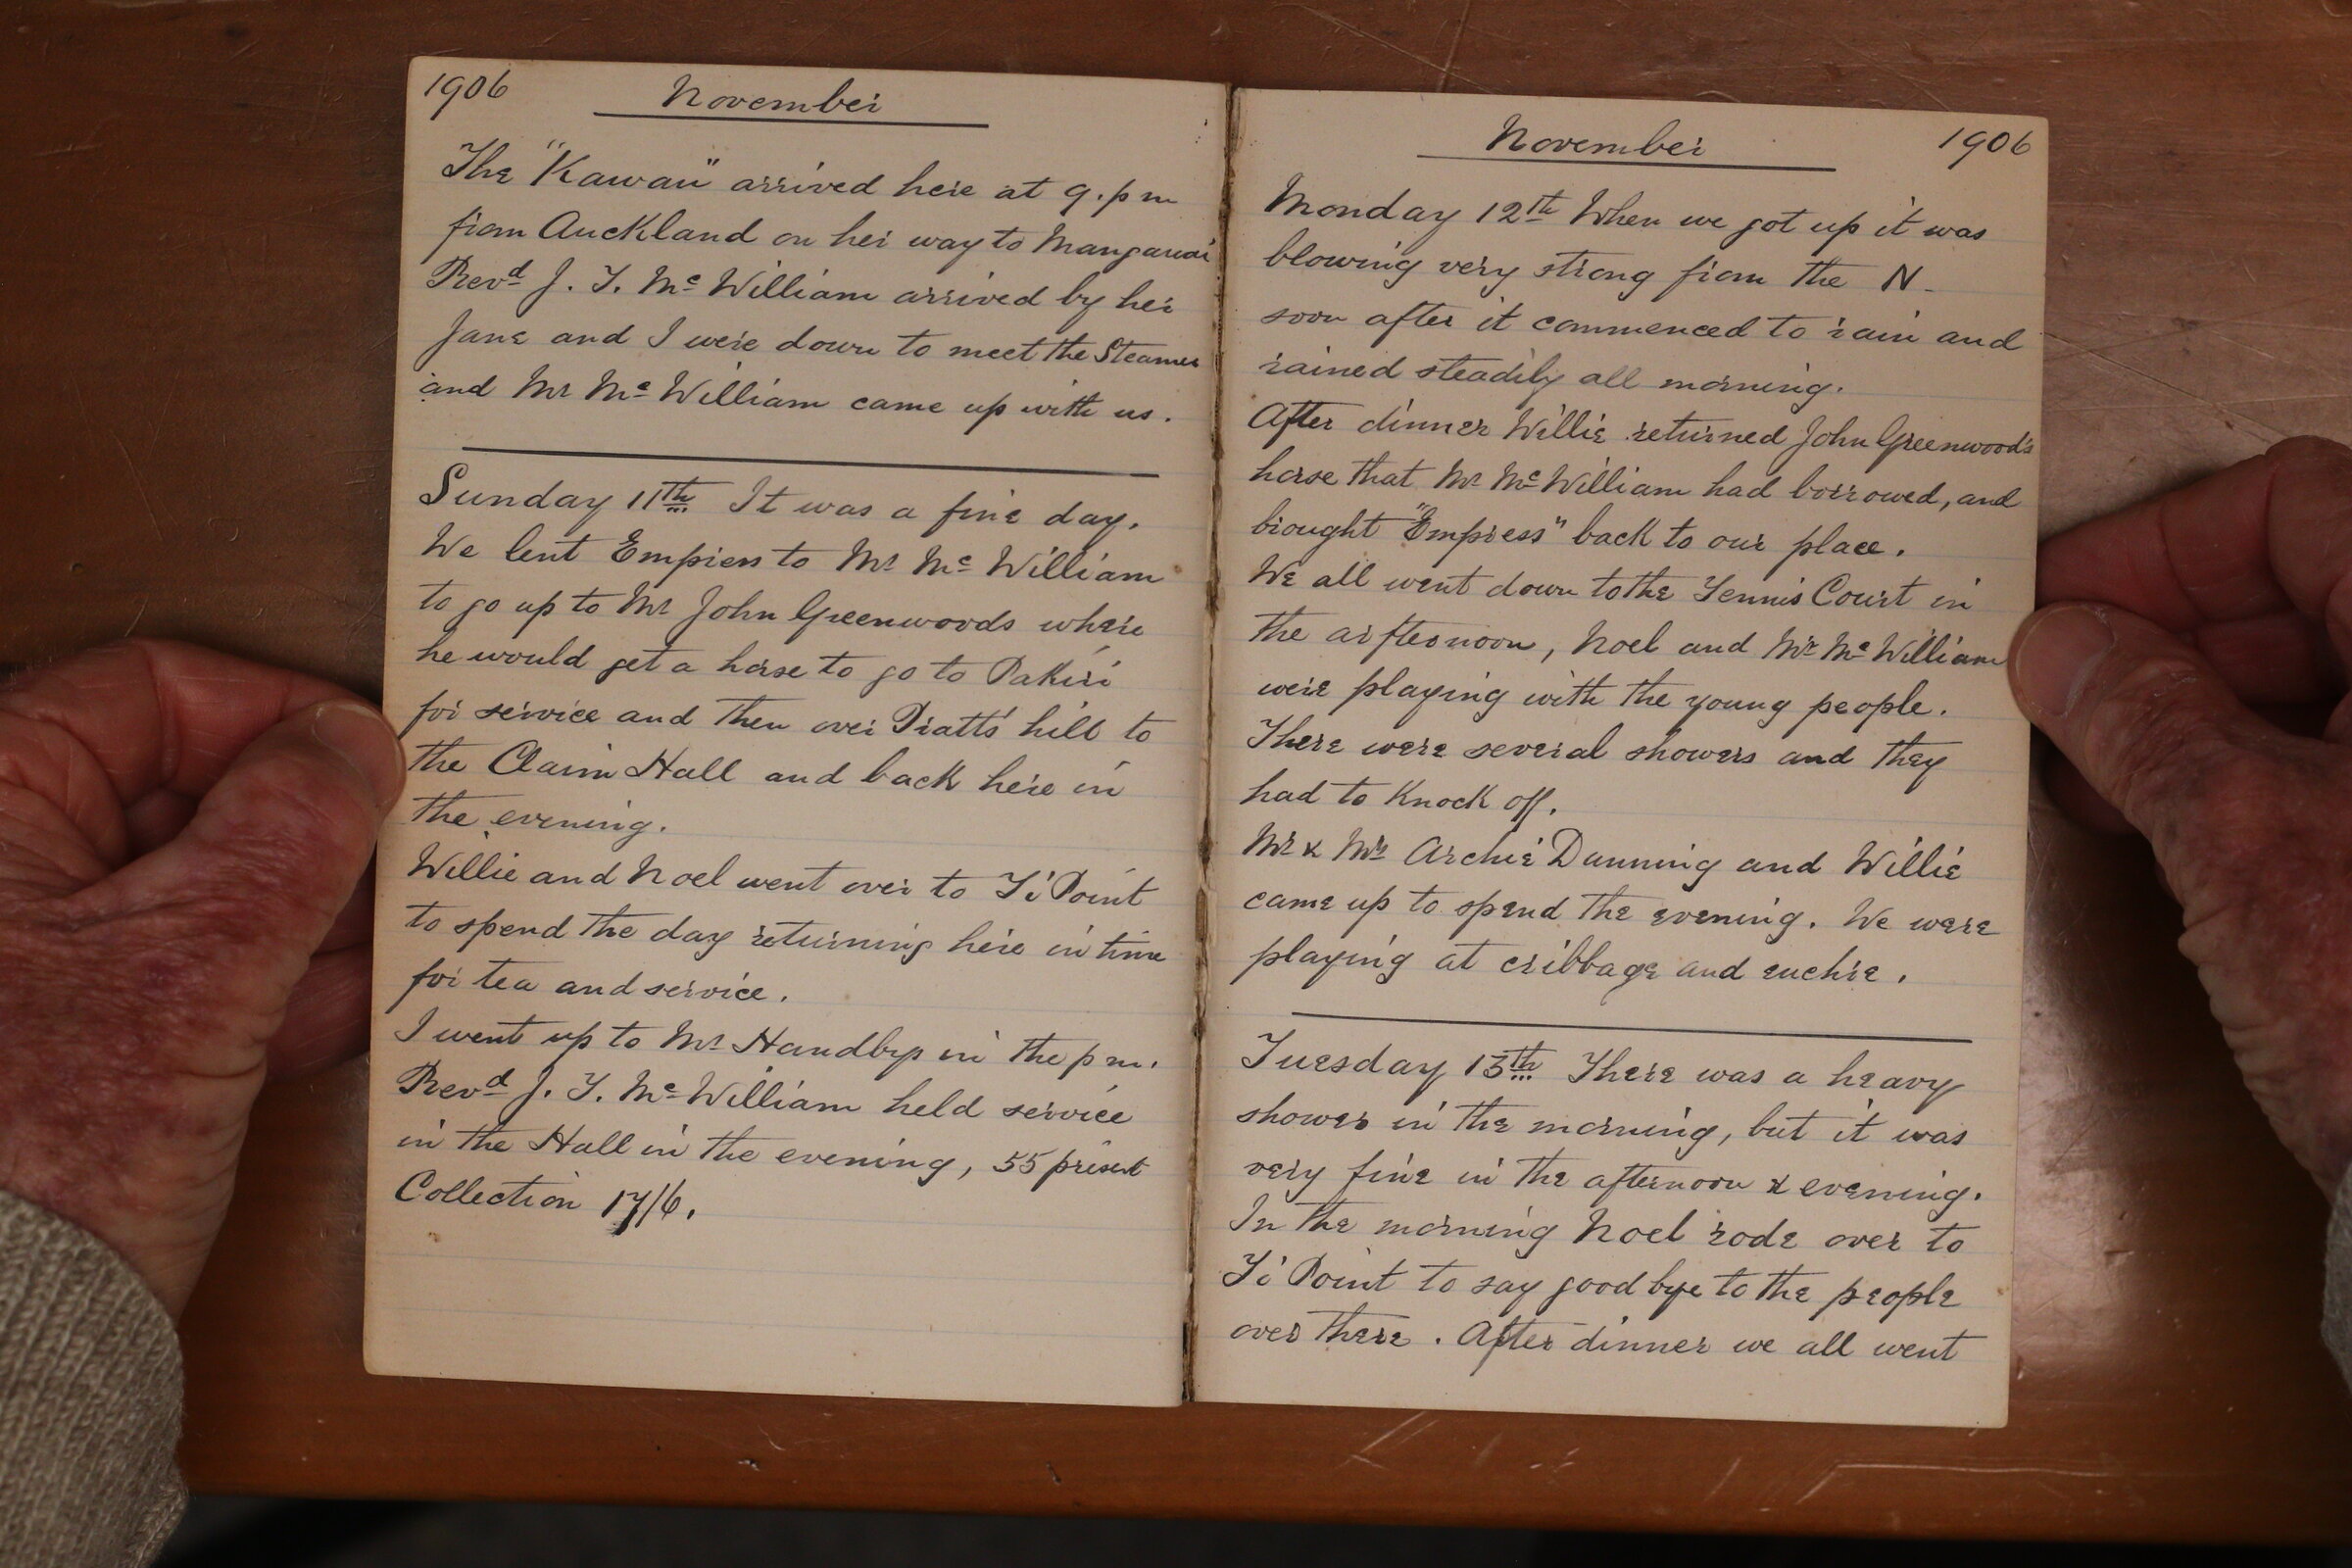 1906 November
The "Kawau" arrived here at 9.pm
from Auckland on her way to Mangawai
Revd J. T. Mc William arrived by her
Jane and I were down to meet the Steamer
and Mr Mc William came up with us.
Sunday 11th It was a fine day.
We lent Empress to Mr Mc William
to go up to Mr John Greenwoods where
he would get a horse to go to Pakiri
for service and then over Pratts hill to
the Claim Hall and back here in
the evening.
Willie and Noel went over to Ti Point
to spend the day returning here in time
for tea and service.
I went up to Mr Handbys in the pm.
Revd J. T. Mc William held service
in the Hall in the evening, 55 present
Collection 17/6.
November 1906
Monday 12th When we got up it was
blowing very strong from the N.
soon after it commenced to rain and
rained steadily all morning.
After dinner Willie returned John Greenwood's
horse that Mr McWilliam had borrowed, and
brought "Empress" back to our place.
We all went down to the Tennis Court in
the arfternoon, Noel and Mr Mc William
were playing with the young people.
There were several showers and they
had to knock off.
Mr & Mrs Archie Dunning and Willie
came up to spend the evening. We were
playing at cribbage and euchre.
Tuesday 13th There was a heavy
shower in the morning, but it was
very fine in the afternoon & evening.
In the morning Noel rode over to
Ti Point to say good bye to the people
over there. After dinner we all went